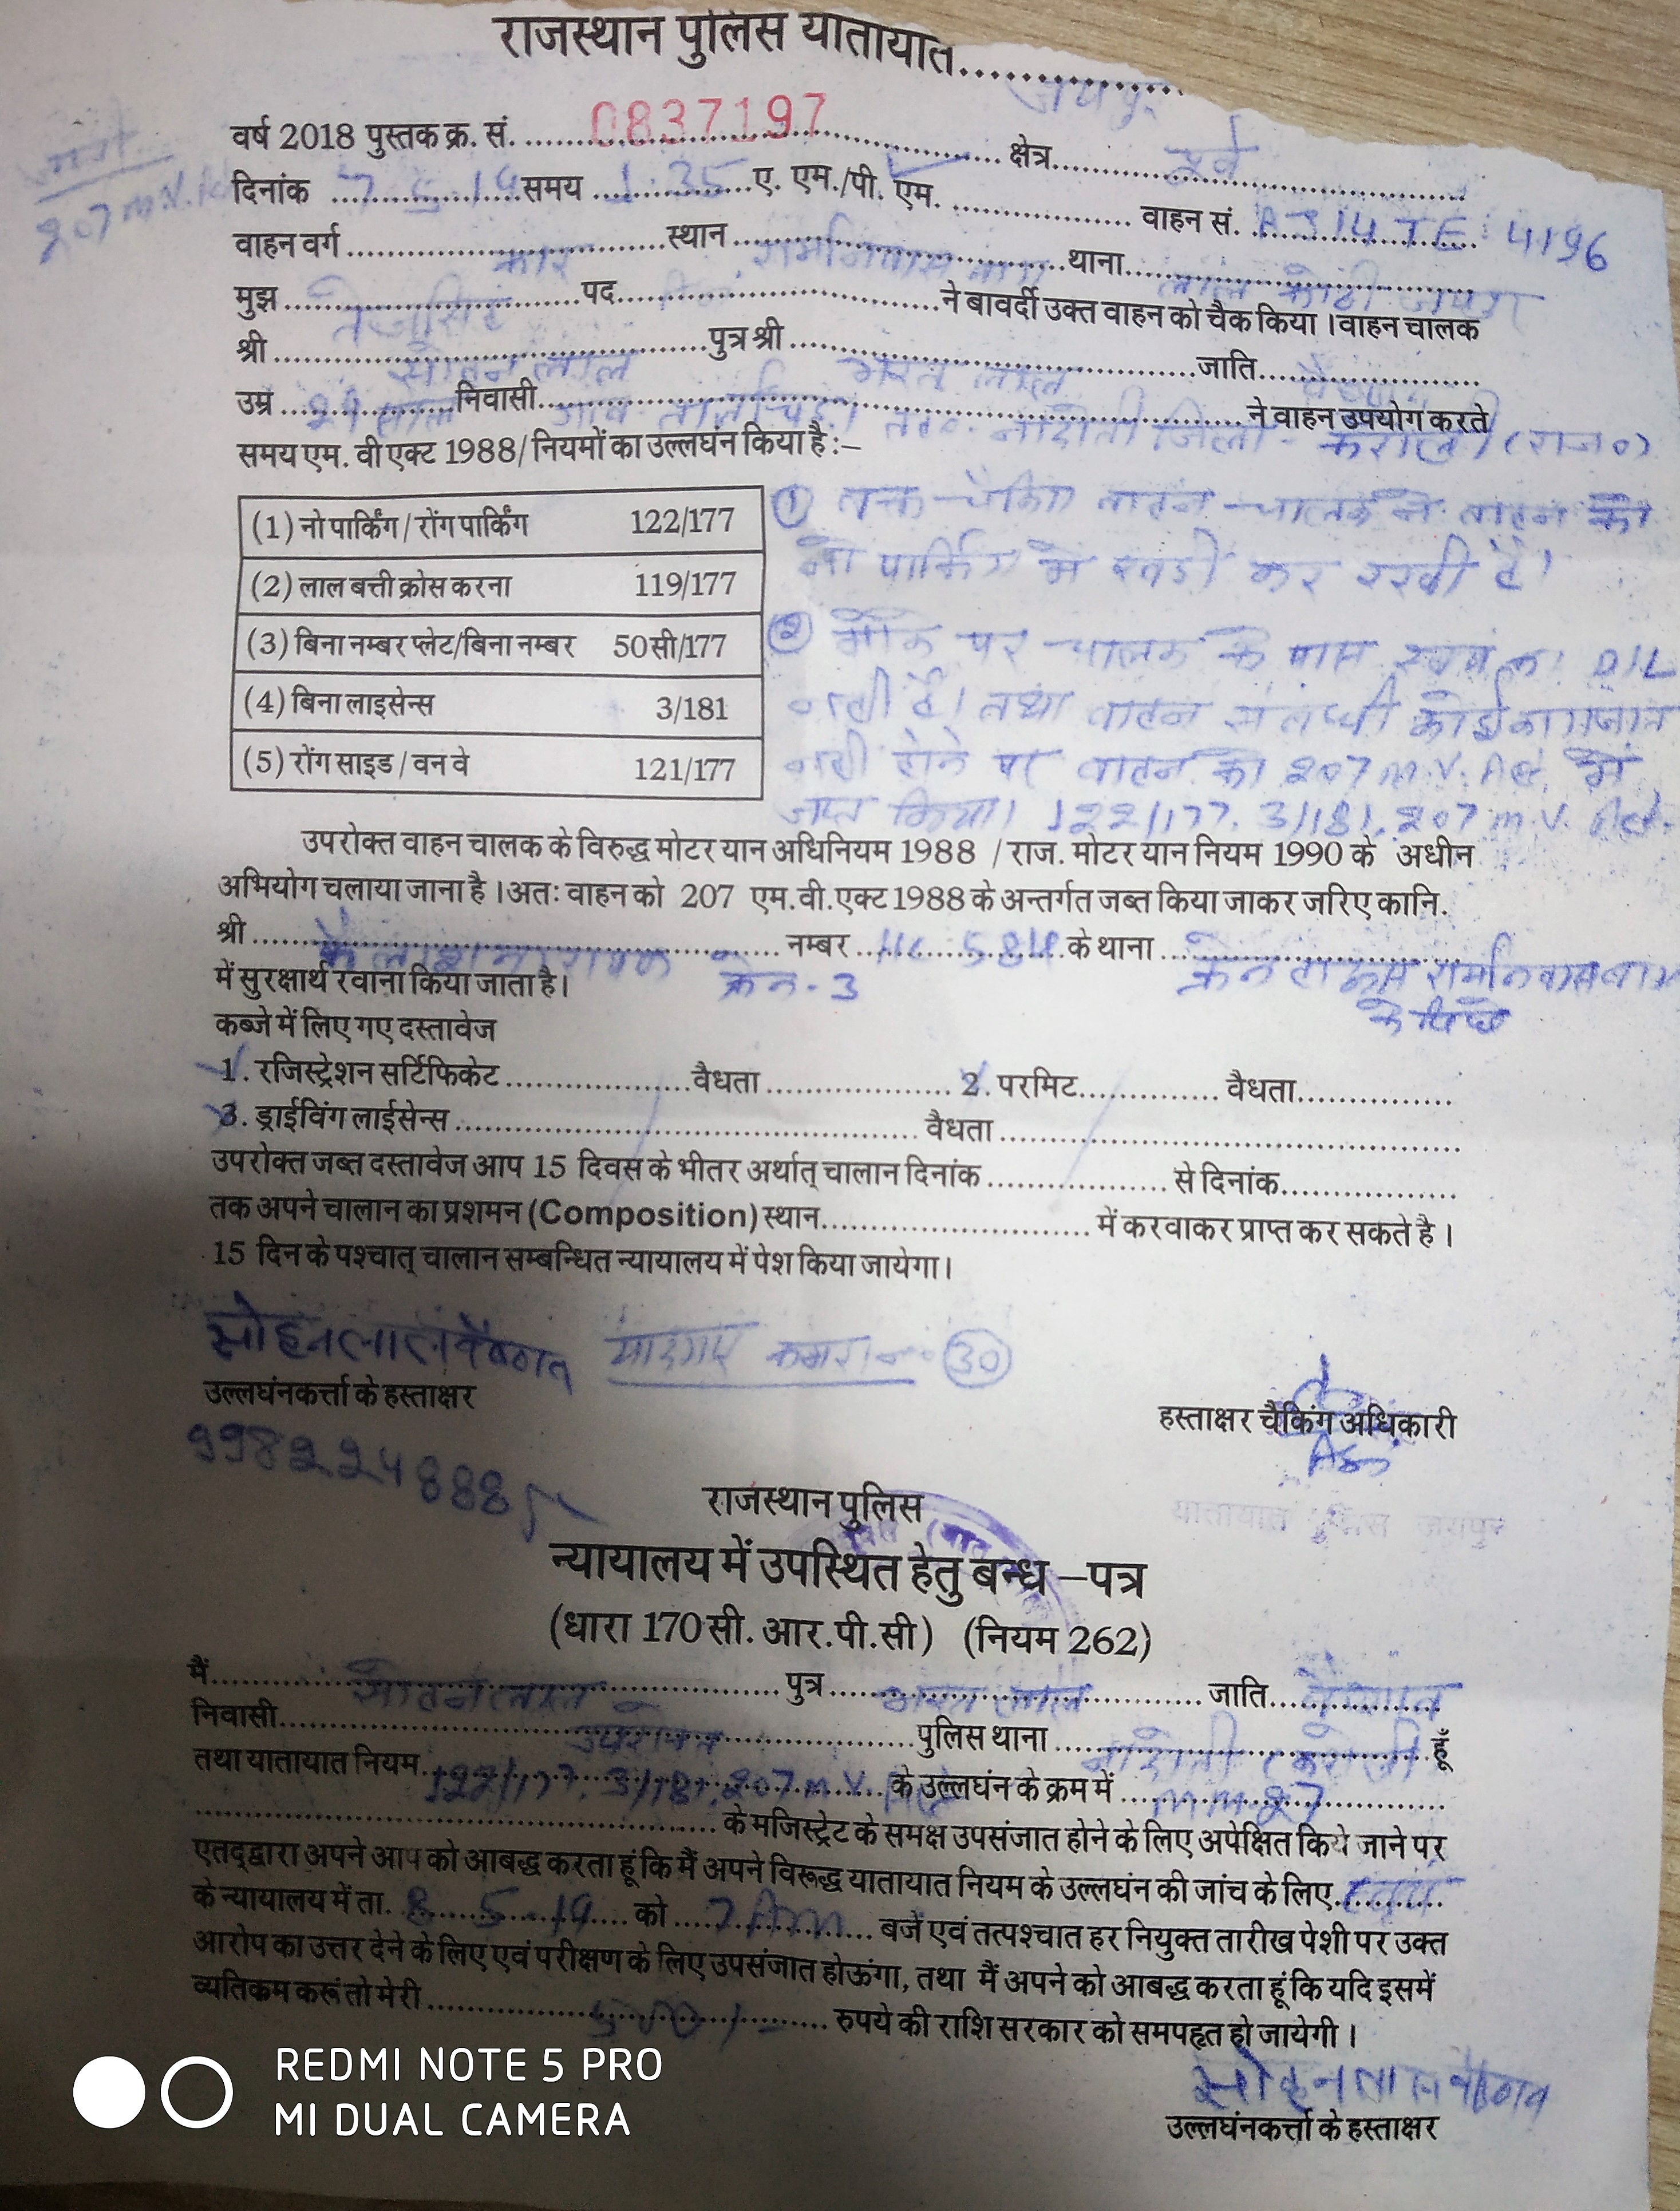 राजस्थान पुलिस यातायात..............
जयपुर
वर्ष 2018 पुस्तक क्र. सं. 0837197 क्षेत्र पूर्व
दिनांक 7.5.19 समय 1:35 ए. एम./पी. एम. वाहन सं. RJ 14 TE 4196
207 M.V. Act
वाहन वर्ग कार स्थान रामनिवास बाग थाना लाल कोठी जयपुर
मुझ तेजसिंह पद ने बावर्दी उक्त वाहन को चैक किया। वाहन चालक
श्री सोहन लाल पुत्र श्री लाल जाति वैष्णव
उम्र 29 साल निवासी गांव तह. नादौती जिला - करौली (राज०) ने वाहन उपयोग करते
समय एम. वी एक्ट 1988/ नियमों का उल्लघंन किया है :–
(1) नो पार्किंग / रोंग पार्किंग 122/177
(2) लाल बत्ती क्रोस करना 119/177
(3) बिना नम्बर प्लेट/बिना नम्बर 50सी/177
(4) बिना लाइसेन्स 3/181
(5) रोंग साइड / वन वे 121/177
① वक्त चैकिंग वाहन चालक ने वाहन को
नो पार्किंग में खडी कर रखी है।
② मौके पर चालक के पास स्वयं का D/L
नही है। तथा वाहन संबन्धी कोई कागजात
नही होने पर वाहन को 207 M.V. Act. में
जप्त किया। 122/177. 3/181. 207 M.V. Act.
उपरोक्त वाहन चालक के विरुद्ध मोटर यान अधिनियम 1988 / राज. मोटर यान नियम 1990 के अधीन
अभियोग चलाया जाना है। अतः वाहन को 207 एम.वी.एक्ट 1988 के अन्तर्गत जब्त किया जाकर जरिए कानि.
श्री कैलाश नारायण नम्बर के थाना
में सुरक्षार्थ रवाना किया जाता है। क्रेन - 3 क्रेन रामनिवास बाग
के पीछे
कब्जे में लिए गए दस्तावेज
1. रजिस्ट्रेशन सर्टिफिकेट.................वैधता................. 2. परमिट............. वैधता..............
3. ड्राईविंग लाईसेन्स ......................................... वैधता.........................................
उपरोक्त जब्त दस्तावेज आप 15 दिवस के भीतर अर्थात् चालान दिनांक................. से दिनांक................
तक अपने चालान का प्रशमन (Composition) स्थान......................... में करवाकर प्राप्त कर सकते है।
15 दिन के पश्चात् चालान सम्बन्धित न्यायालय में पेश किया जायेगा।
सोहनलाल वैष्णव यादगार कमरा न० 30
उल्लघंनकर्त्ता के हस्ताक्षर
हस्ताक्षर चैकिंग अधिकारी
9982248885
ASI
यातायात पुलिस जयपुर
राजस्थान पुलिस
न्यायालय में उपस्थित हेतु बन्ध –पत्र
(धारा 170 सी. आर.पी.सी) (नियम 262)
मैं सोहनलाल पुत्र लाल जाति वैष्णव
निवासी उपरोक्त पुलिस थाना नादौती (करौली हूँ
तथा यातायात नियम 122/177. 3/181. 207 M.V. Act के उल्लघंन के क्रम में M M. 27
के मजिस्ट्रेट के समक्ष उपसंजात होने के लिए अपेक्षित किये जाने पर
एतद्द्वारा अपने आप को आबद्ध करता हूं कि मैं अपने विरूद्ध यातायात नियम के उल्लघंन की जांच के लिए स्वयं
के न्यायालय में ता. 8.5.19 को 7 AM बजे एवं तत्पश्चात हर नियुक्त तारीख पेशी पर उक्त
आरोप का उत्तर देने के लिए एवं परीक्षण के लिए उपसंजात होऊंगा, तथा मैं अपने को आबद्ध करता हूं कि यदि इसमें
व्यतिकम करूं तो मेरी 500/- रुपये की राशि सरकार को समपहृत हो जायेगी।
सोहनलाल वैष्णव
उल्लघंनकर्त्ता के हस्ताक्षर
REDMI NOTE 5 PRO
MI DUAL CAMERA